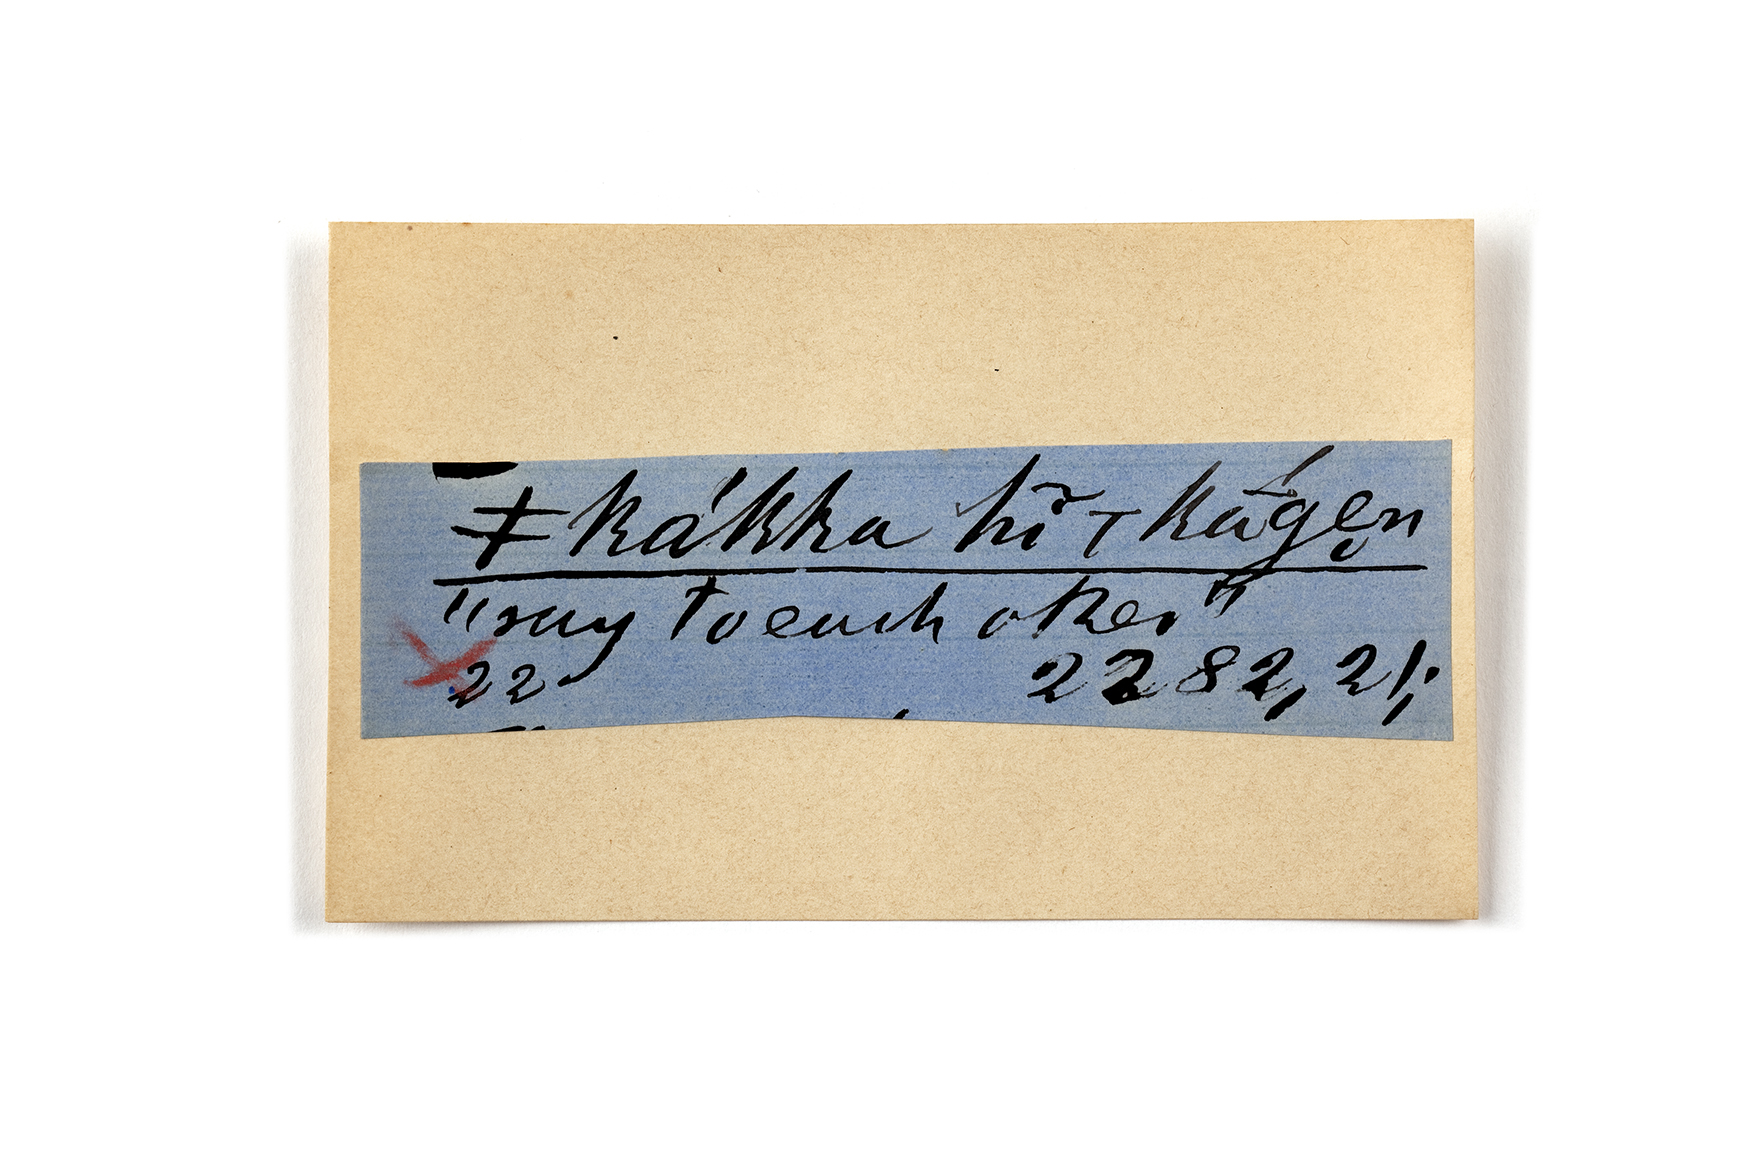 ǂkákka hĩ ꞇ káge̥n
"say to each other"
22 2282, 21,